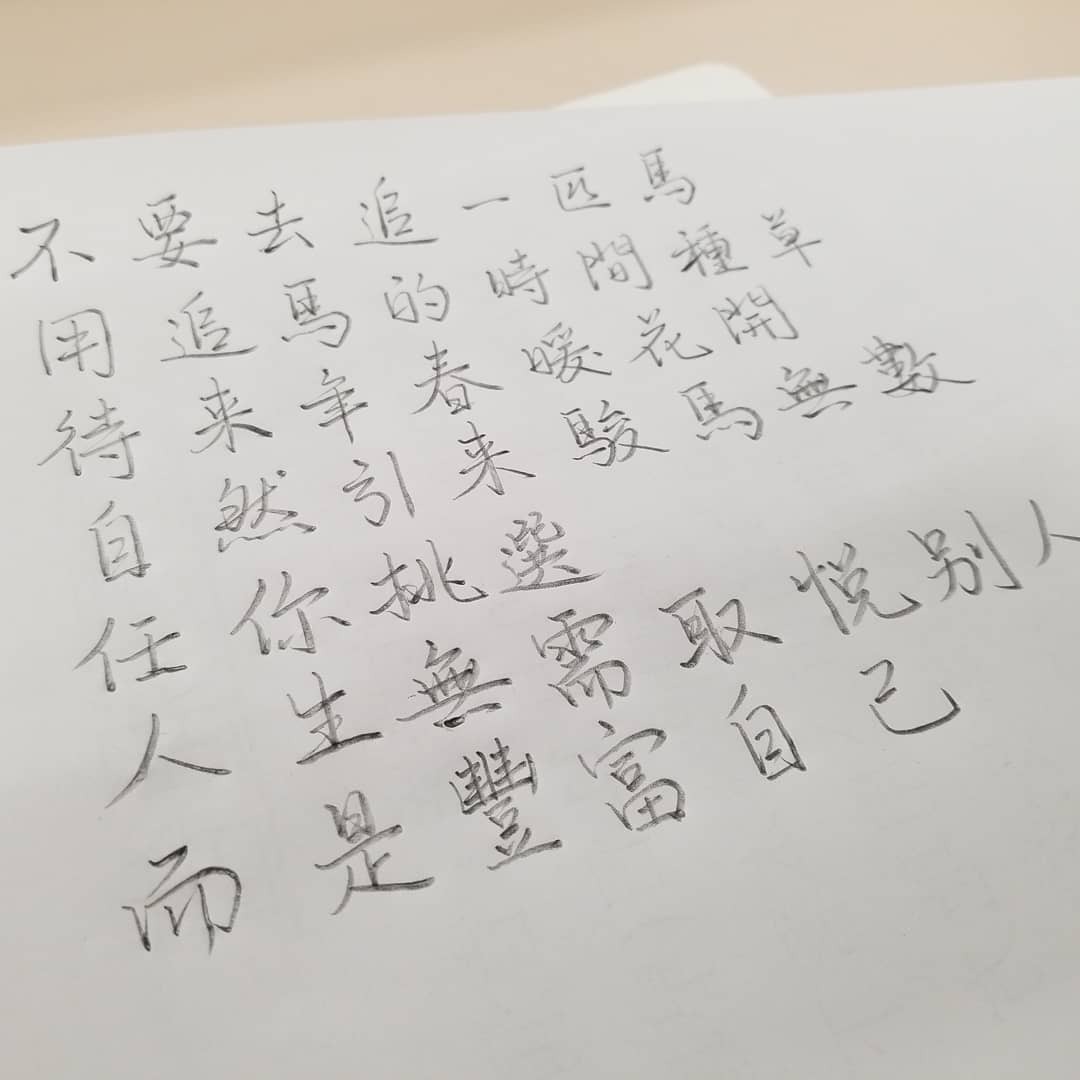 不要去追一匹馬
用追馬的時間種草
待来年春暖花開
自然引来駿馬無數
任你挑選
人生無需取悅別人
而是豐富自己